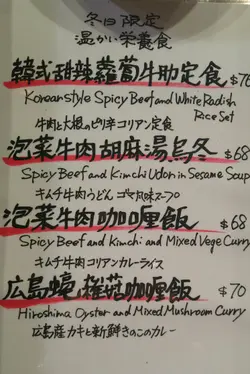 冬日限定
温かい栄養食
韓式胡辣蘿蔔牛肋定食 $76
Korean style Spicy Beef and White Radish
Rice Set
牛肉と大根のピリ辛コリアン定食
泡菜牛肉胡麻湯烏冬 $68
Spicy Beef and Kimchi Udon in Sesame Soup
キムチ牛肉うどん ゴマ風味スープ
泡菜牛肉咖喱飯 $68
Spicy Beef and Kimchi and Mixed Vege Curry
キムチ牛肉コリアンカレーライス
広島蠔雜菇咖喱飯 $70
Hiroshima Oyster and Mixed Mushroom Curry
広島産カキと新鮮きのこのカレー